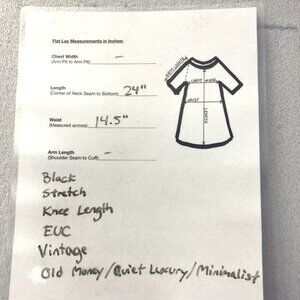 Flat Lay Measurements in Inches:
Chest Width
(Arm Pit to Arm Pit)
–
Length
(Center of Neck Seam to Bottom)
24"
Waist
(Measured across)
14.5"
Arm Length
(Shoulder Seam to Cuff)
–
Black
Stretch
Knee Length
EUC
Vintage
Old Money/Quiet Luxury/Minimalist
CHEST
WAIST
LENGTH